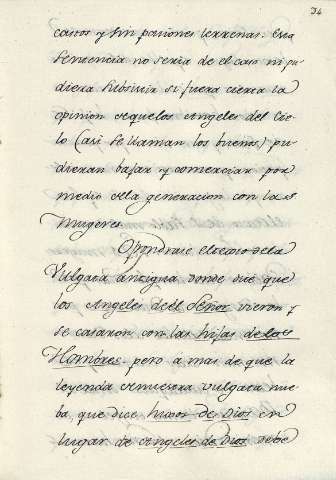 34
castos y sin pasiones terrenas. Esta
sentencia no seria de el caso ni pu
diera subsistir si fuera cierta la
opinion de que los Angeles del Cie-
lo (asi se llaman los buenos) pu-
dieran bajar y comerciar por
medio de la generacion con las
mugeres.
Opondrase el texto de la
Vulgata antigua donde dice que
los Angeles del Señor vieron y
se casaron con las hijas de los
Hombres. pero a mas de que la
leyenda de nuestra vulgata nue
ba, que dice hijos de Dios en
lugar de Angeles de Dios debe